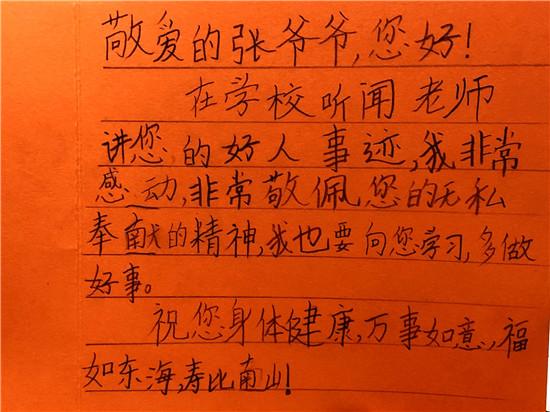 敬爱的张爷爷,您好!
在学校听闻老师
讲您的好人事迹,我非常
感动,非常敬佩您的无私
奉献的精神,我也要向您学习,多做
好事。
祝您身体健康,万事如意,福
如东海,寿比南山!